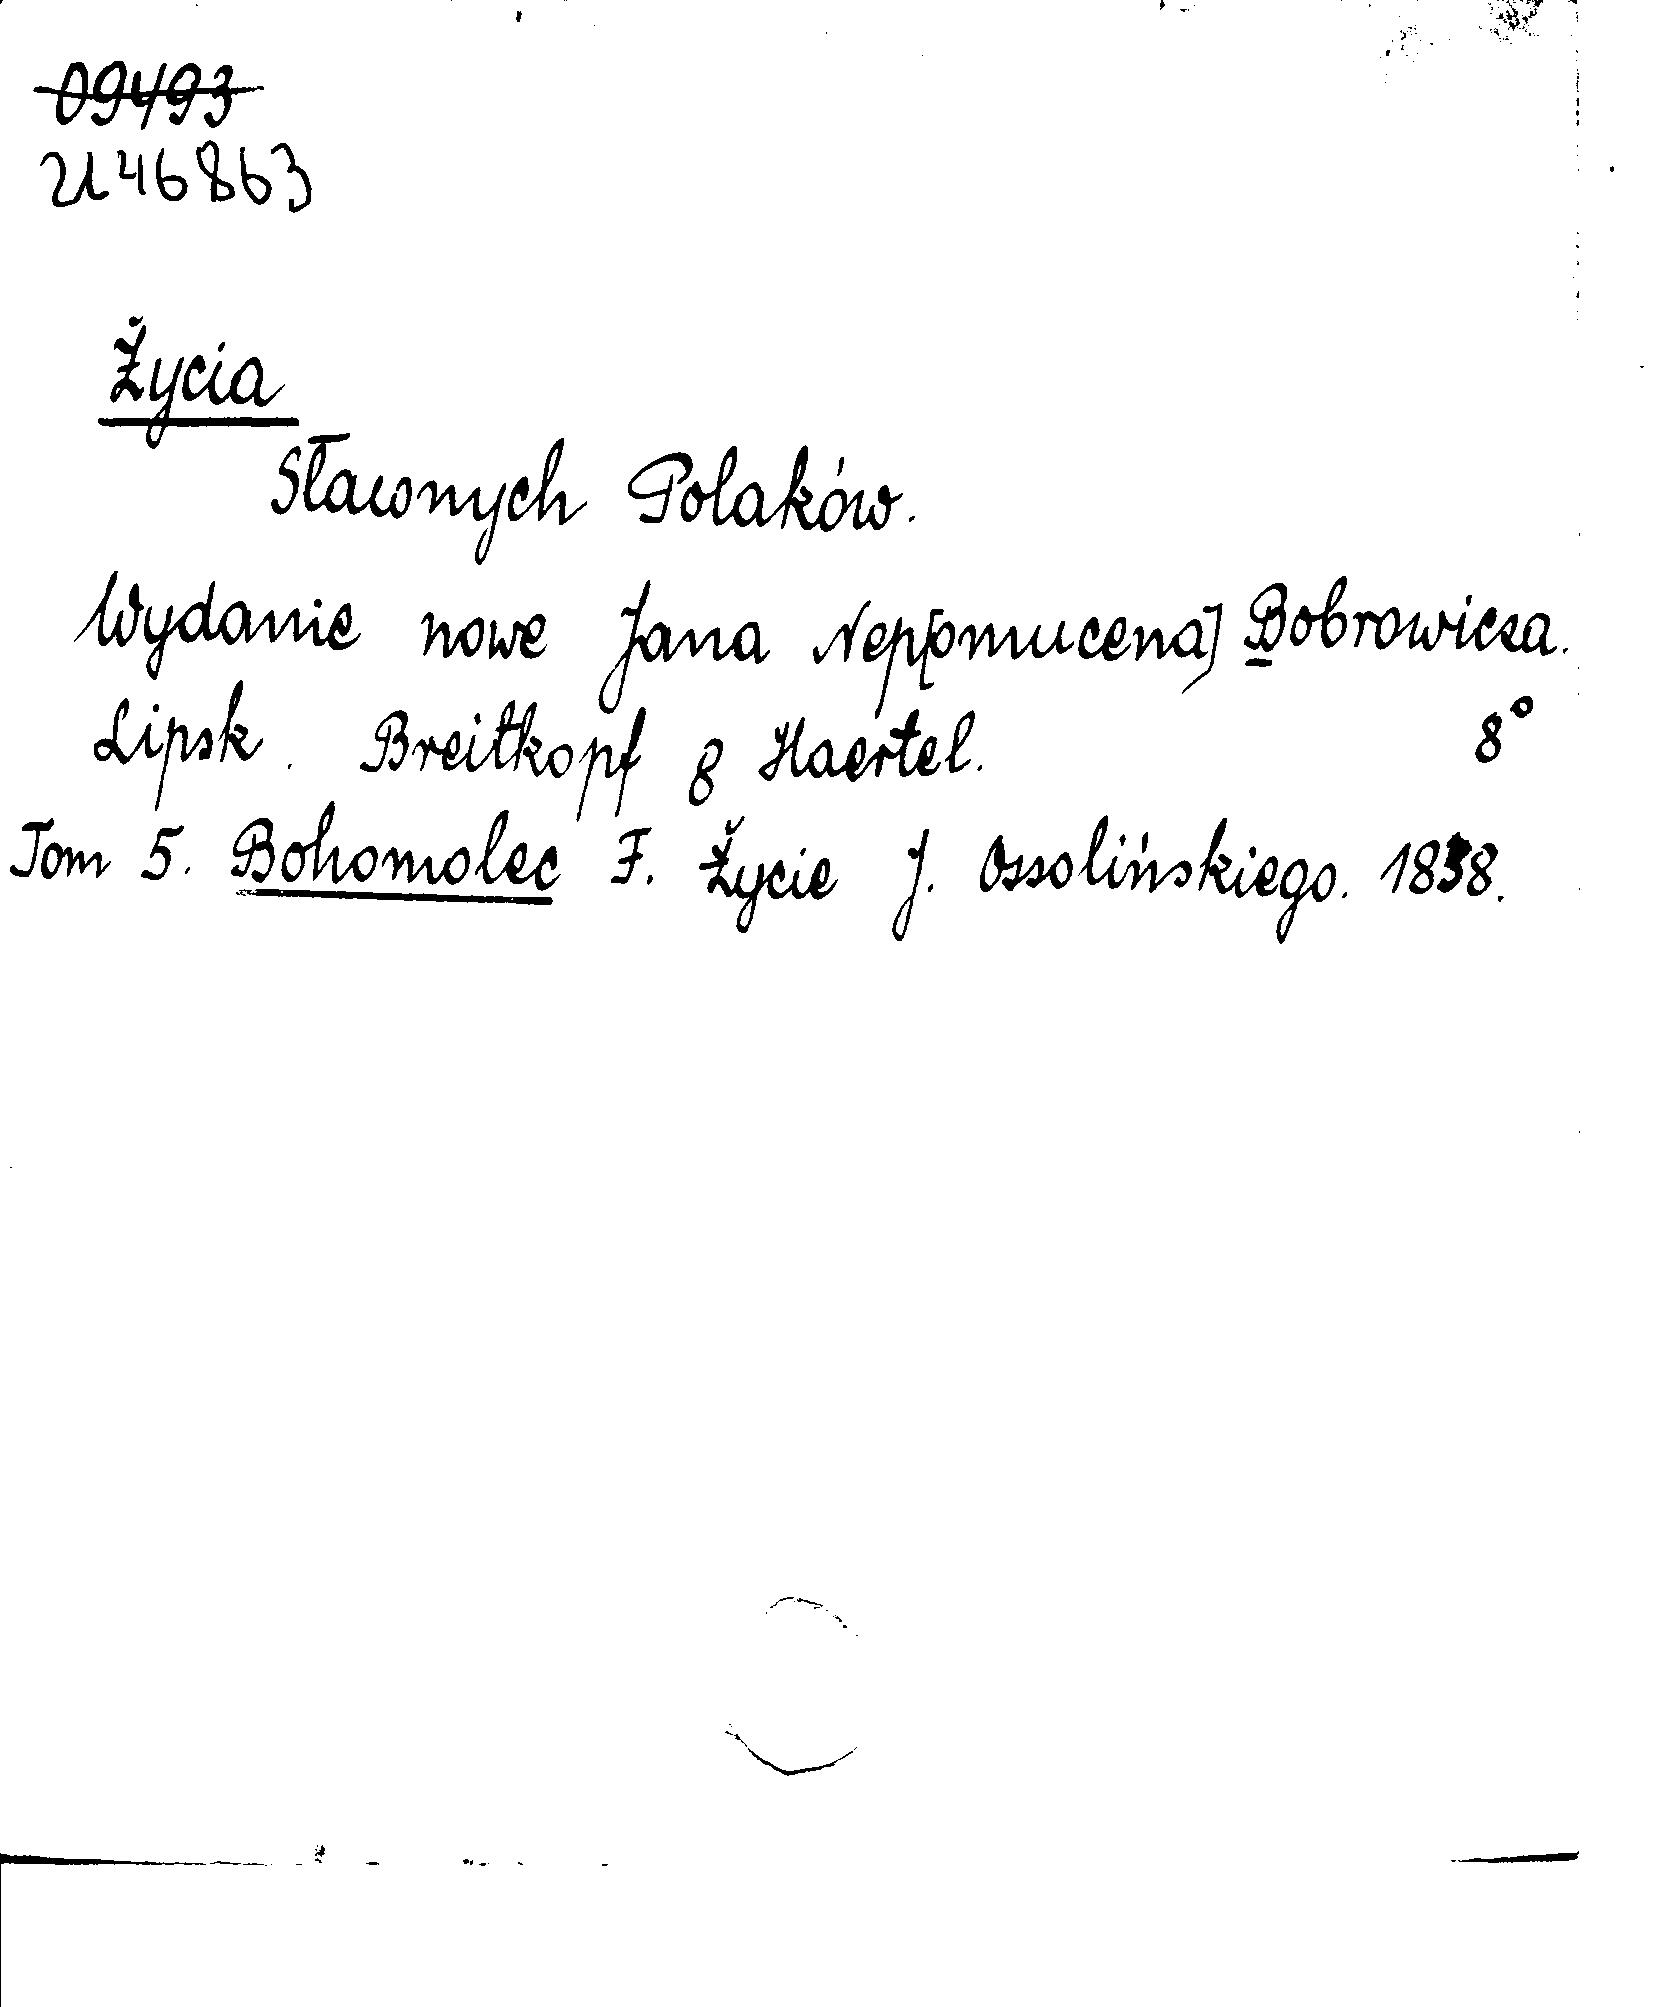 09493
2146863
Życia
Sławnych Polaków.
Wydanie nowe Jana Nep[omucena] Bobrowicza.
Lipsk. Breitkopf & Haertel. 8°
Tom 5. Bohomolec F. Życie J. Ossolińskiego. 1838.